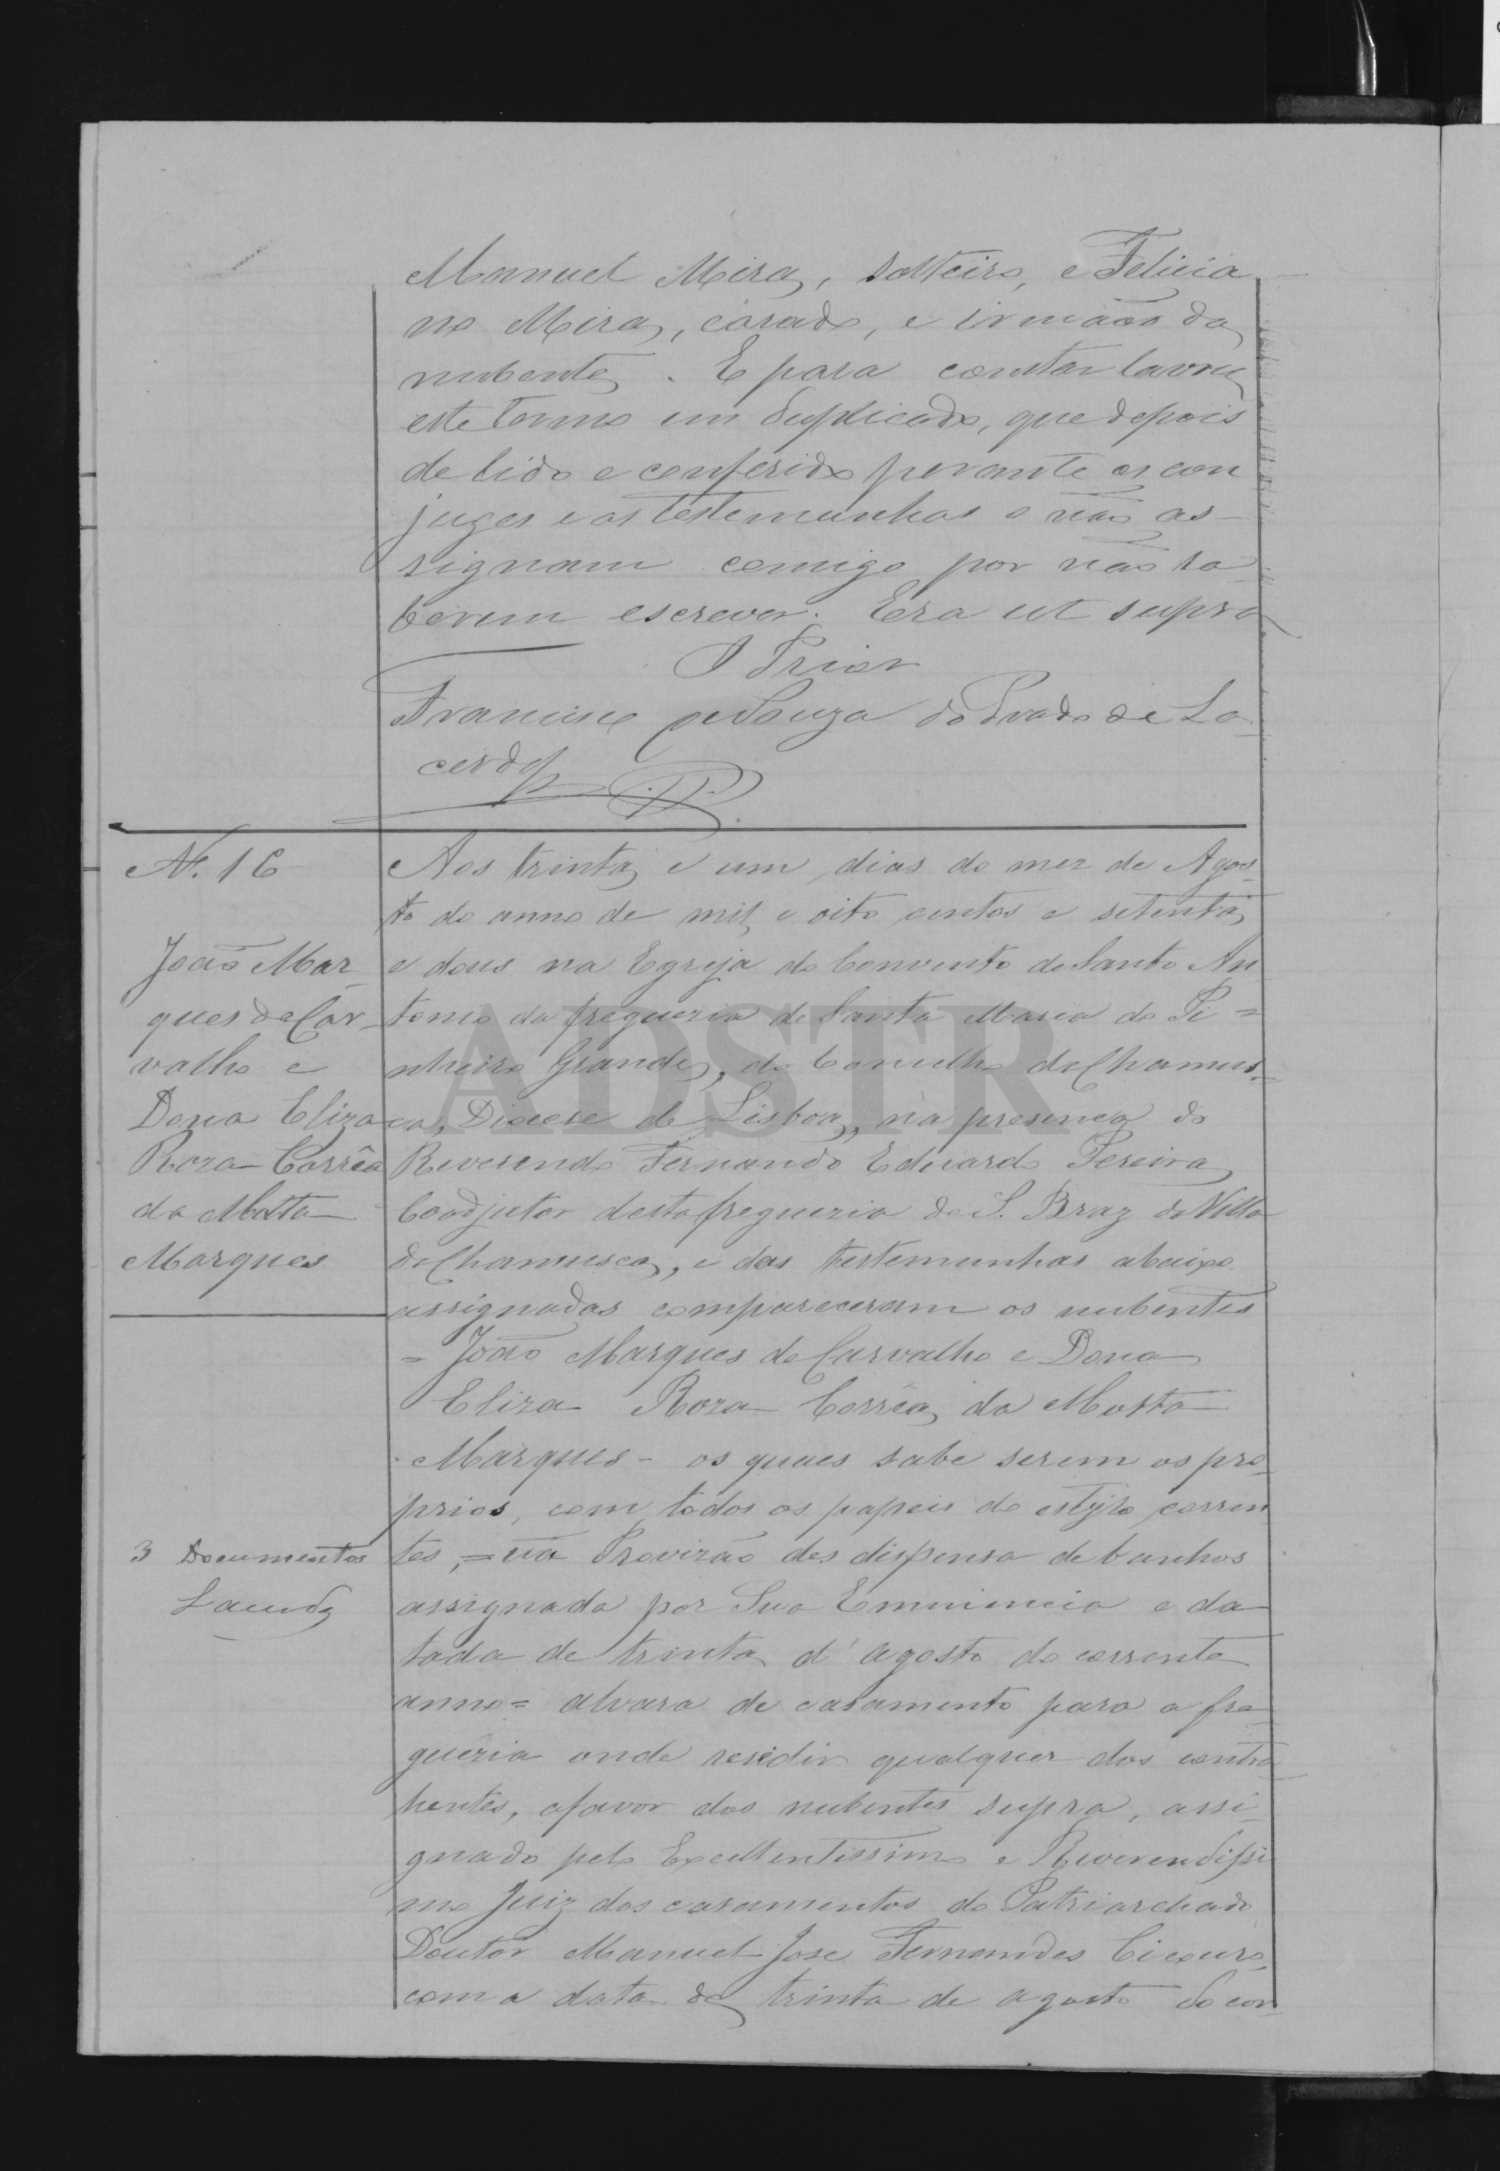 Manuel Mira, solteiro, e Felicia
no Mira, casado, e irmãos da
nubente. E para constar lavrei
este termo em duplicado, que depois
de lido e conferido perante os con
juges e as testemunhas o não as-
signam comigo por não sa
berem escrever. Era ut supra
O Prior
Francisco de Souza do Prado de La
cerda
Nº. 16
João Mar
ques de Car-
valho e
Dona Eliza
Roza Corrêa
da Motta
Marques
3 Documentos
Lacerda
Aos trinta e um dias do mez de Agos-
to do anno de mil e oito centos e setenta
e dous na Egreja do Convento de Santo An
tonio da freguezia de Santa Maria do Pi=
nheiro Grande, do Concelho da Chamus=
ca, Diocese de Lisboa, na presença do
Reverendo Fernando Eduardo Pereira
Coadjutor desta freguezia de S. Braz da Villa
da Chamusca, e das testemunhas abaixo
assignadas compareceram os nubentes
= João Marques de Carvalho e Dona
Eliza Roza Corrêa da Motta
Marques - os quaes sabe serem os pro-
prios, com todos os papeis do estylo corren
tes, = uã Provizão des dispensa de banhos
assignada por Sua Eminencia e da
tada de trinta d'agosto do corrente
anno = alvara de casamento para a fre
guezia onde residir qualquer dos contra
hentes, a favor dos nubentes supra, assi-
gnado pelo Excellentissimo e Reverendissi
mo Juiz dos casamentos do Patriarchado
Doutor Manuel Jose Fernandes Cicouro
com a data de trinta de agosto do cor-
ADSTR